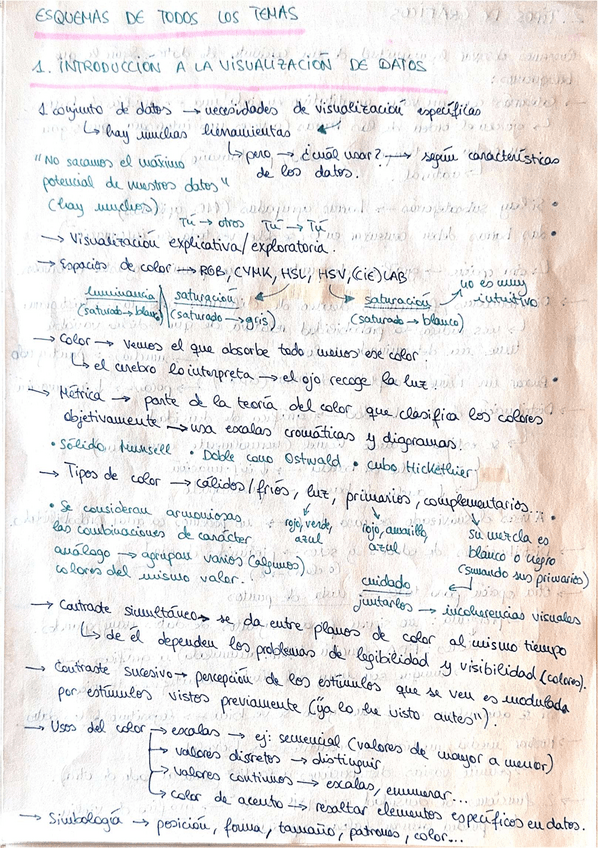 ESQUEMAS DE TODOS LOS TEMAS
1. INTRODUCCIÓN A LA VISUALIZACIÓN DE DATOS
1 conjunto de datos → necesidades de visualización específicas
↳ hay muchas herramientas
↳ pero → ¿cuál usar? → según características
de los datos.
"No sacamos el máximo
potencial de nuestros datos"
(hay muchos)
Tú → otros Tú → Tú
→ Visualización explicativa/exploratoria.
→ Espacios de color → RGB, CYMK, HSL, HSV, (CIE)LAB
no es muy
intuitivo
luminancia saturación
(saturado → blanco) (saturado → gris)
saturación
(saturado → blanco)
→ Color → vemos el que absorbe todo menos ese color.
↳ el cerebro lo interpreta → el ojo recoge la luz.
→ Métrica → parte de la teoría del color que clasifica los colores
objetivamente → usa escalas cromáticas y diagramas.
• Sólido Munsell • Doble cono Ostwald • cubo Hickethier
→ Tipos de color → cálidos/fríos, luz, primarios, complementarios...
• Se consideran armoniosas
las combinaciones de carácter
análogo → agrupan varios (algunos)
colores del mismo valor.
rojo, verde,
azul
rojo, amarillo,
azul
su mezcla es
blanco o negro
(sumando sus primarios)
cuidado
juntarlos → incoherencias visuales
→ Contraste simultáneo → se da entre planos de color al mismo tiempo
↳ de él dependen los problemas de legibilidad y visibilidad (colores).
→ Contraste sucesivo → percepción de los estímulos que se ven es modulada
por estímulos vistos previamente ("ya lo he visto antes").
→ Usos del color → escalas → ej: secuencial (valores de mayor a menor)
→ valores discretos → distinguir
→ valores continuos → escalas, enumerar...
→ color de acento → resaltar elementos específicos en datos.
→ Simbología → posición, forma, tamaño, patrones, color...